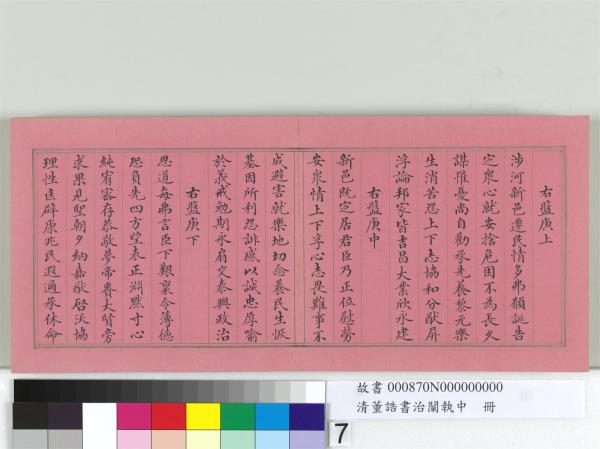 右盤庚上
涉河新邑遷民情多弗順誕告
定眾心就安捨危困不為長久
謀罹憂尚自勸承先養黎元樂
生消苦思上下志協和分猷屏
浮論邦家皆吉昌大業欣永建
右盤庚中
新邑既定居君臣乃正位慰勞
安眾情上下孚心志畏難事不
成避害就樂地切念養民生恢
基因所利忽誹慼以誠忠厚喻
於義戒勉期永肩交泰興政治
右盤庚下
思道每弗言臣下艱稟令薄德
恐負先四方望表正淵默寸心
純宥密存恭敬夢帝賚大賢旁
求果見聖朝夕納嘉猷啓沃協
理性匡辟康兆民遐邇承休命
故書 000870N000000000
清董誥書治闈執中 冊
7